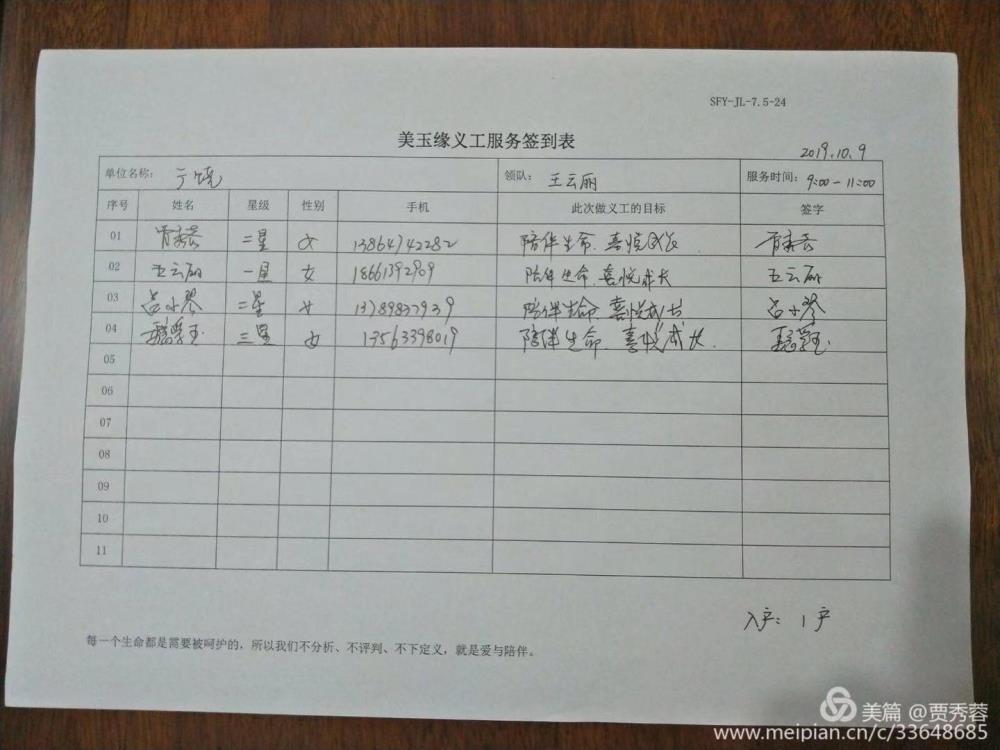 SFY-JL-7.5-24
美玉缘义工服务签到表
2019.10.9
单位名称： 领队： 王云丽 服务时间： 9:00-11:00
序号 姓名 星级 性别 手机 此次做义工的目标 签字
01 二星 女 13864742282 陪伴生命.喜悦成长
02 王云丽 一星 女 18661392909 陪伴生命.喜悦成长 王云丽
03 吕小琴 二星 女 13789837939 陪伴生命.喜悦成长 吕小琴
04 三星 女 13563398019 陪伴生命.喜悦成长.
05
06
07
08
09
10
11
入户：1户
每一个生命都是需要被呵护的，所以我们不分析、不评判、不下定义，就是爱与陪伴。
美篇 @贾秀蓉
www.meipian.cn/c/33648685